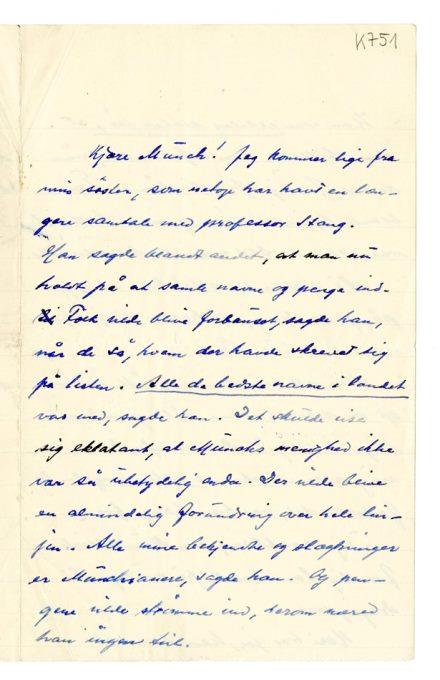 K751
Kjære Munch! Jeg kommer lige fra
min söster, som netop har havt en læn-
gere samtale med professor Stang.
Han sagde blandt andet, at man nu
holdt på at samle navne og penge ind.
Folk vilde blive forbauset, sagde han,
når de så, hvem der havde skrevet sig
på listen. Alle de bedste navne i landet
var med, sagde han. Det skulde vise
sig eklatant, at Munchs menighed ikke
var så ubetydelig endda. Der vilde blive
en almindelig forundring over hele lin-
jen. Alle mine bekjendte og slægtninger
er Munchianere, sagde han. Og pen-
gene vilde strømme ind, derom næred
han ingen tvil.